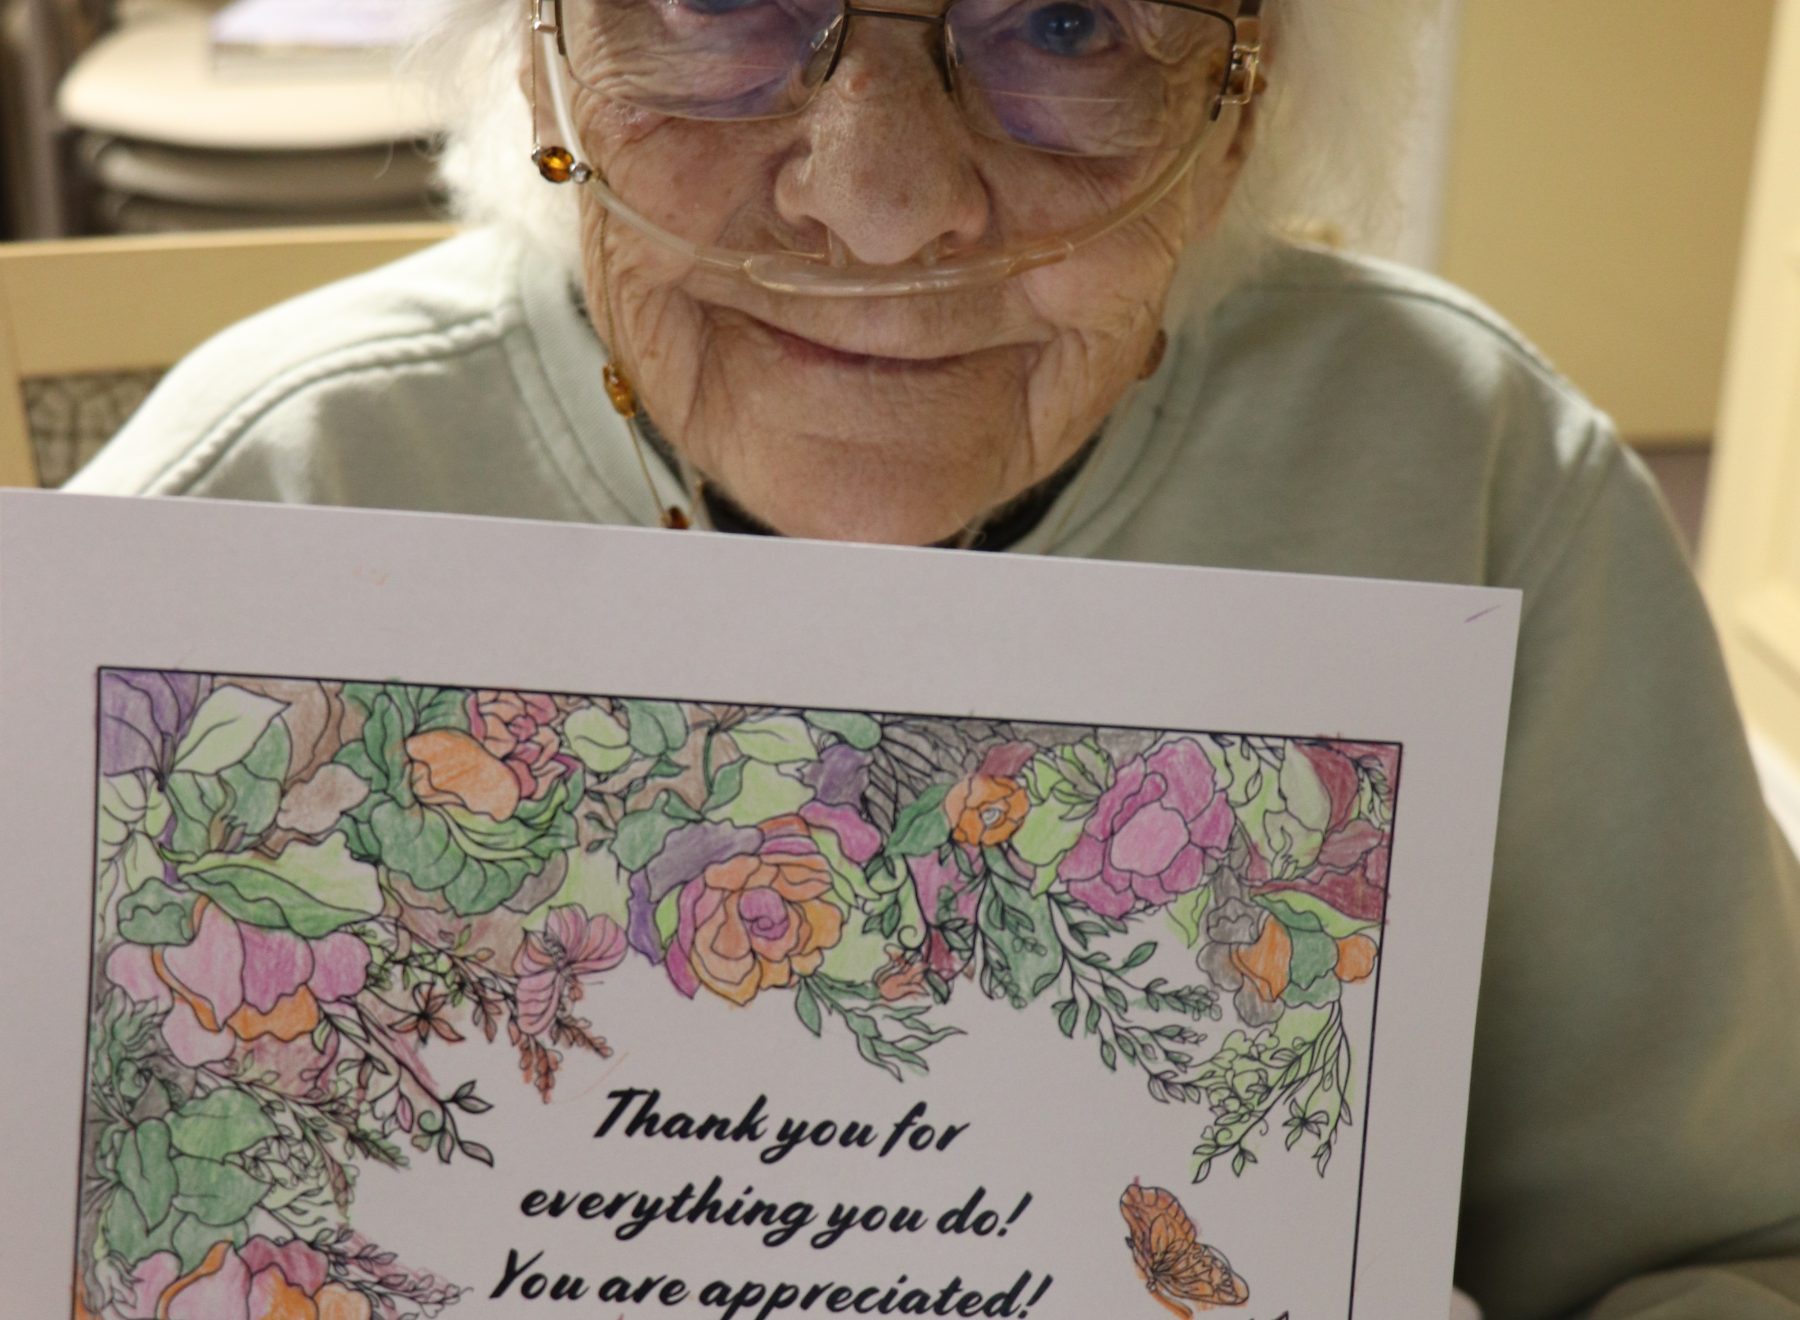 Thank you for
everything you do!
You are appreciated!